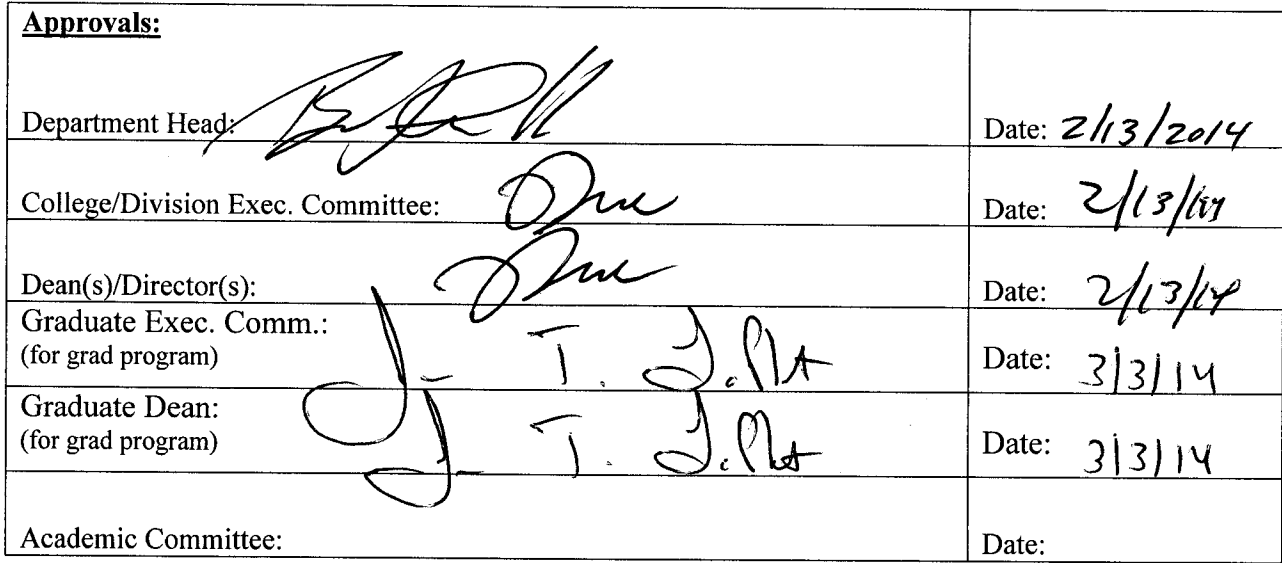 Approvals:
Department Head: Date: 2/13/2014
College/Division Exec. Committee: Date: 2/13/14
Dean(s)/Director(s): Date: 2/13/14
Graduate Exec. Comm.:
(for grad program) Date: 3/3/14
Graduate Dean:
(for grad program) Date: 3/3/14
Academic Committee: Date: